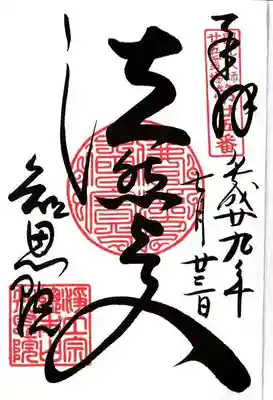 奉拝
平成廿九年
七月廿三日
法然上人
知恩院
淨土宗
總本山
知恩院